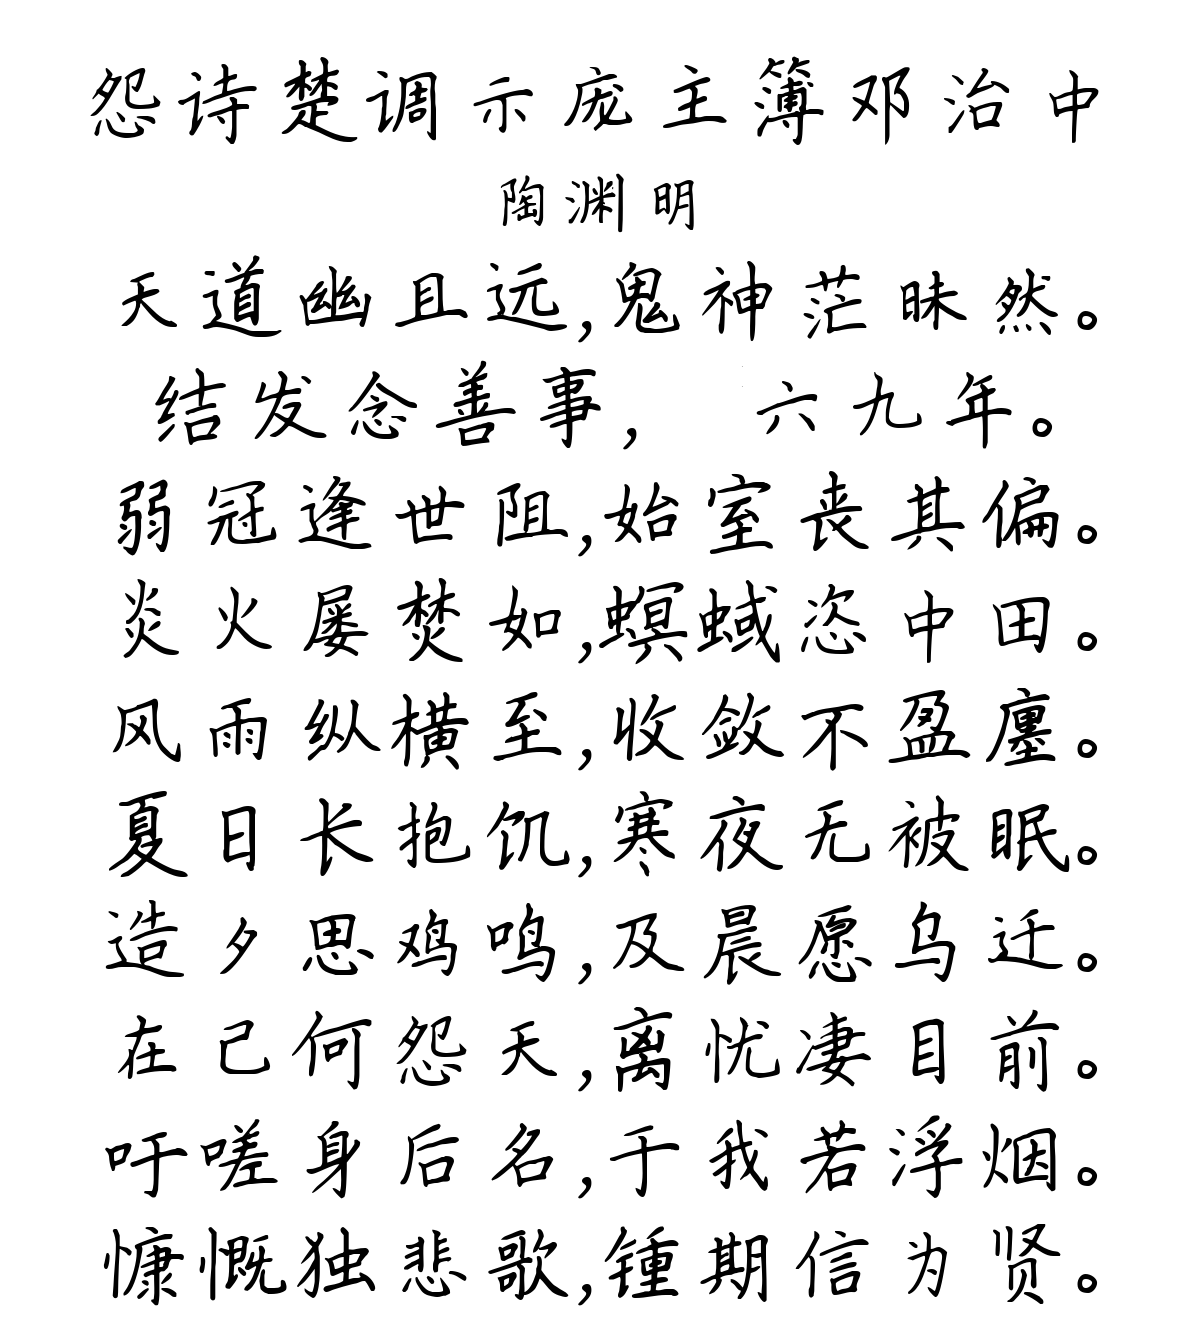 怨诗楚调示庞主簿邓治中
陶渊明
天道幽且远,鬼神茫昧然。
结发念善事, 六九年。
弱冠逢世阻,始室丧其偏。
炎火屡焚如,螟蜮恣中田。
风雨纵横至,收敛不盈廛。
夏日长抱饥,寒夜无被眠。
造夕思鸡鸣,及晨愿乌迁。
在己何怨天,离忧凄目前。
吁嗟身后名,于我若浮烟。
慷慨独悲歌,锺期信为贤。